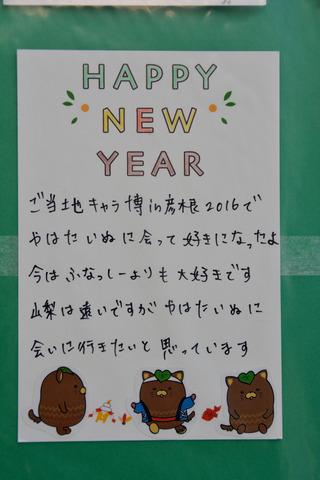 HAPPY
NEW
YEAR
ご当地キャラ博in彦根2016で
やはたいぬに会って好きになったよ
今はふなっしーよりも大好きです
山梨は遠いですがやはたいぬに
会いに行きたいと思っています